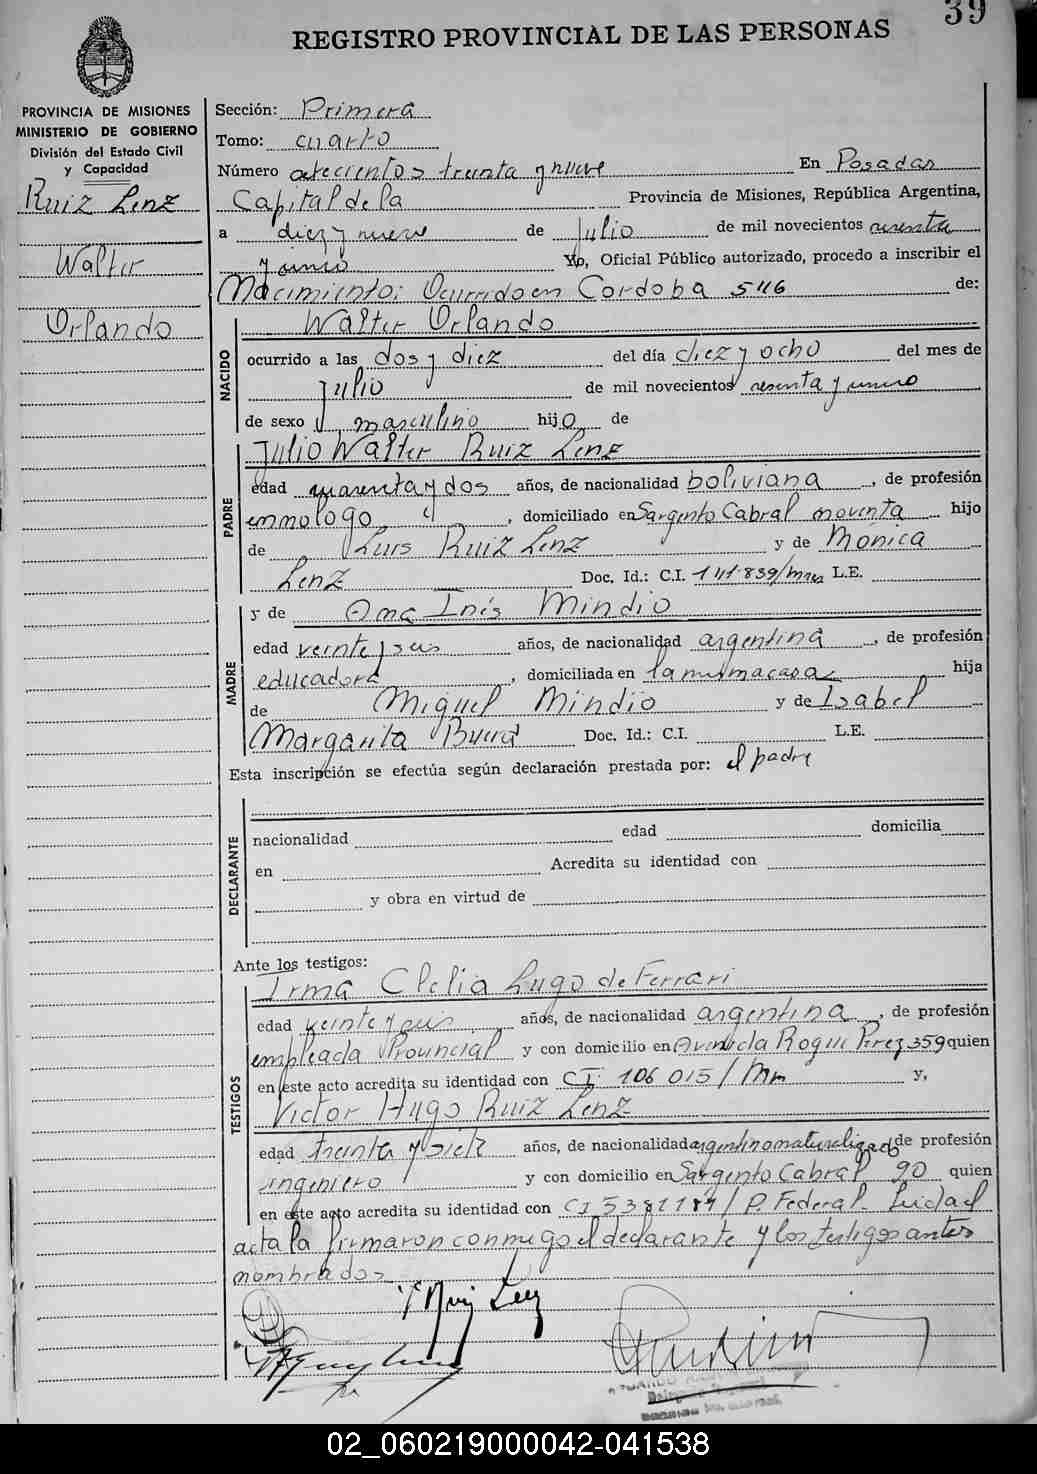 39
REGISTRO PROVINCIAL DE LAS PERSONAS
PROVINCIA DE MISIONES
MINISTERIO DE GOBIERNO
División del Estado Civil
y Capacidad
Ruiz Lenz
Walter
Orlando
Sección: Primera
Tomo: cuarto
Número setecientos treinta y nueve En Posadas
Capital de la Provincia de Misiones, República Argentina,
a diez y nueve de Julio de mil novecientos sesenta
y uno Yo, Oficial Público autorizado, procedo a inscribir el
Nacimiento: Ocurrido en Cordoba 546 de:
NACIDO
Walter Orlando
ocurrido a las dos y diez del día diez y ocho del mes de
Julio de mil novecientos sesenta y uno
de sexo masculino hijo de
PADRE
Julio Walter Ruiz Lenz
edad cuarenta y dos años, de nacionalidad boliviana, de profesión
enmologo, domiciliado en Sargento Cabral noventa hijo
de Luis Ruiz Lenz y de Mónica
Lenz Doc. Id.: C.I. 141.839/mnes L.E.
MADRE
y de Ana Inés Mindio
edad veinte y seis años, de nacionalidad argentina, de profesión
educadora, domiciliada en la misma casa hija
de Miguel Mindio y de Isabel
Margarita Doc. Id.: C.I. L.E.
Esta inscripción se efectúa según declaración prestada por: el padre
DECLARANTE
nacionalidad edad domicilia
en Acredita su identidad con
y obra en virtud de
Ante los testigos:
TESTIGOS
Irma Clelia Lugo de Ferrari
edad veinte y seis, años, de nacionalidad argentina, de profesión
empleada Provincial y con domicilio en Avenida Roque Perez 359 quien
en este acto acredita su identidad con CI. 106 015/Mm y,
Victor Hugo Ruiz Lenz
edad treinta y siete años, de nacionalidad argentino naturalizado de profesión
ingeniero y con domicilio en Sargento Cabral 90 quien
en este acto acredita su identidad con CI 5381184/P. Federal. Leida el
acta la firmaron conmigo el declarante y los testigos antes
nombrados
02_060219000042-041538